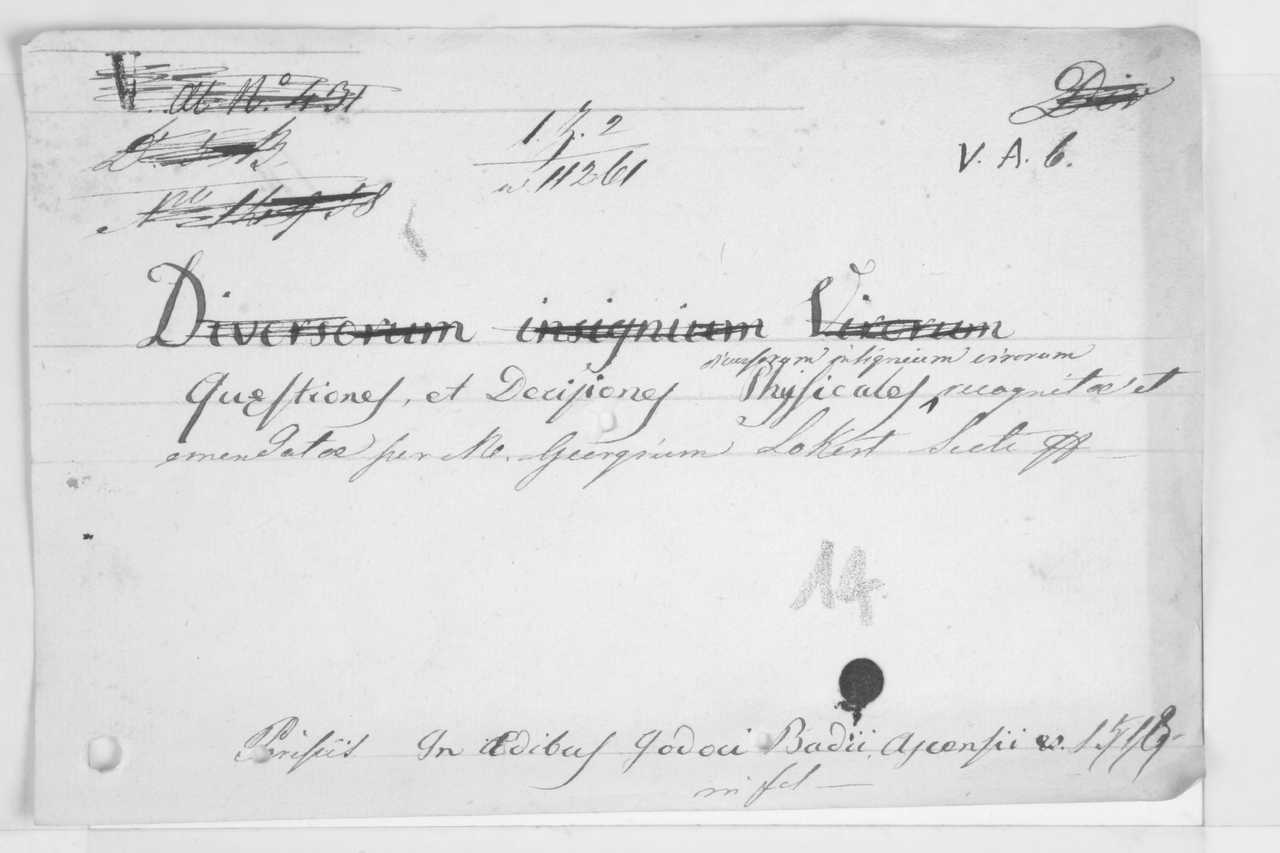 At N.º 431
Div
1. Z. 2
V. A. 6.
w. 11261
Diversorum insignium Virorum
diversorum insignium virorum
Quęstiones, et Decisiones Physicales recognitæ et
emendatæ per M. Georgium Lokert Scoti
14
Parisiis In Ædibus Jodoci Badii Ascensii 1518
in fol